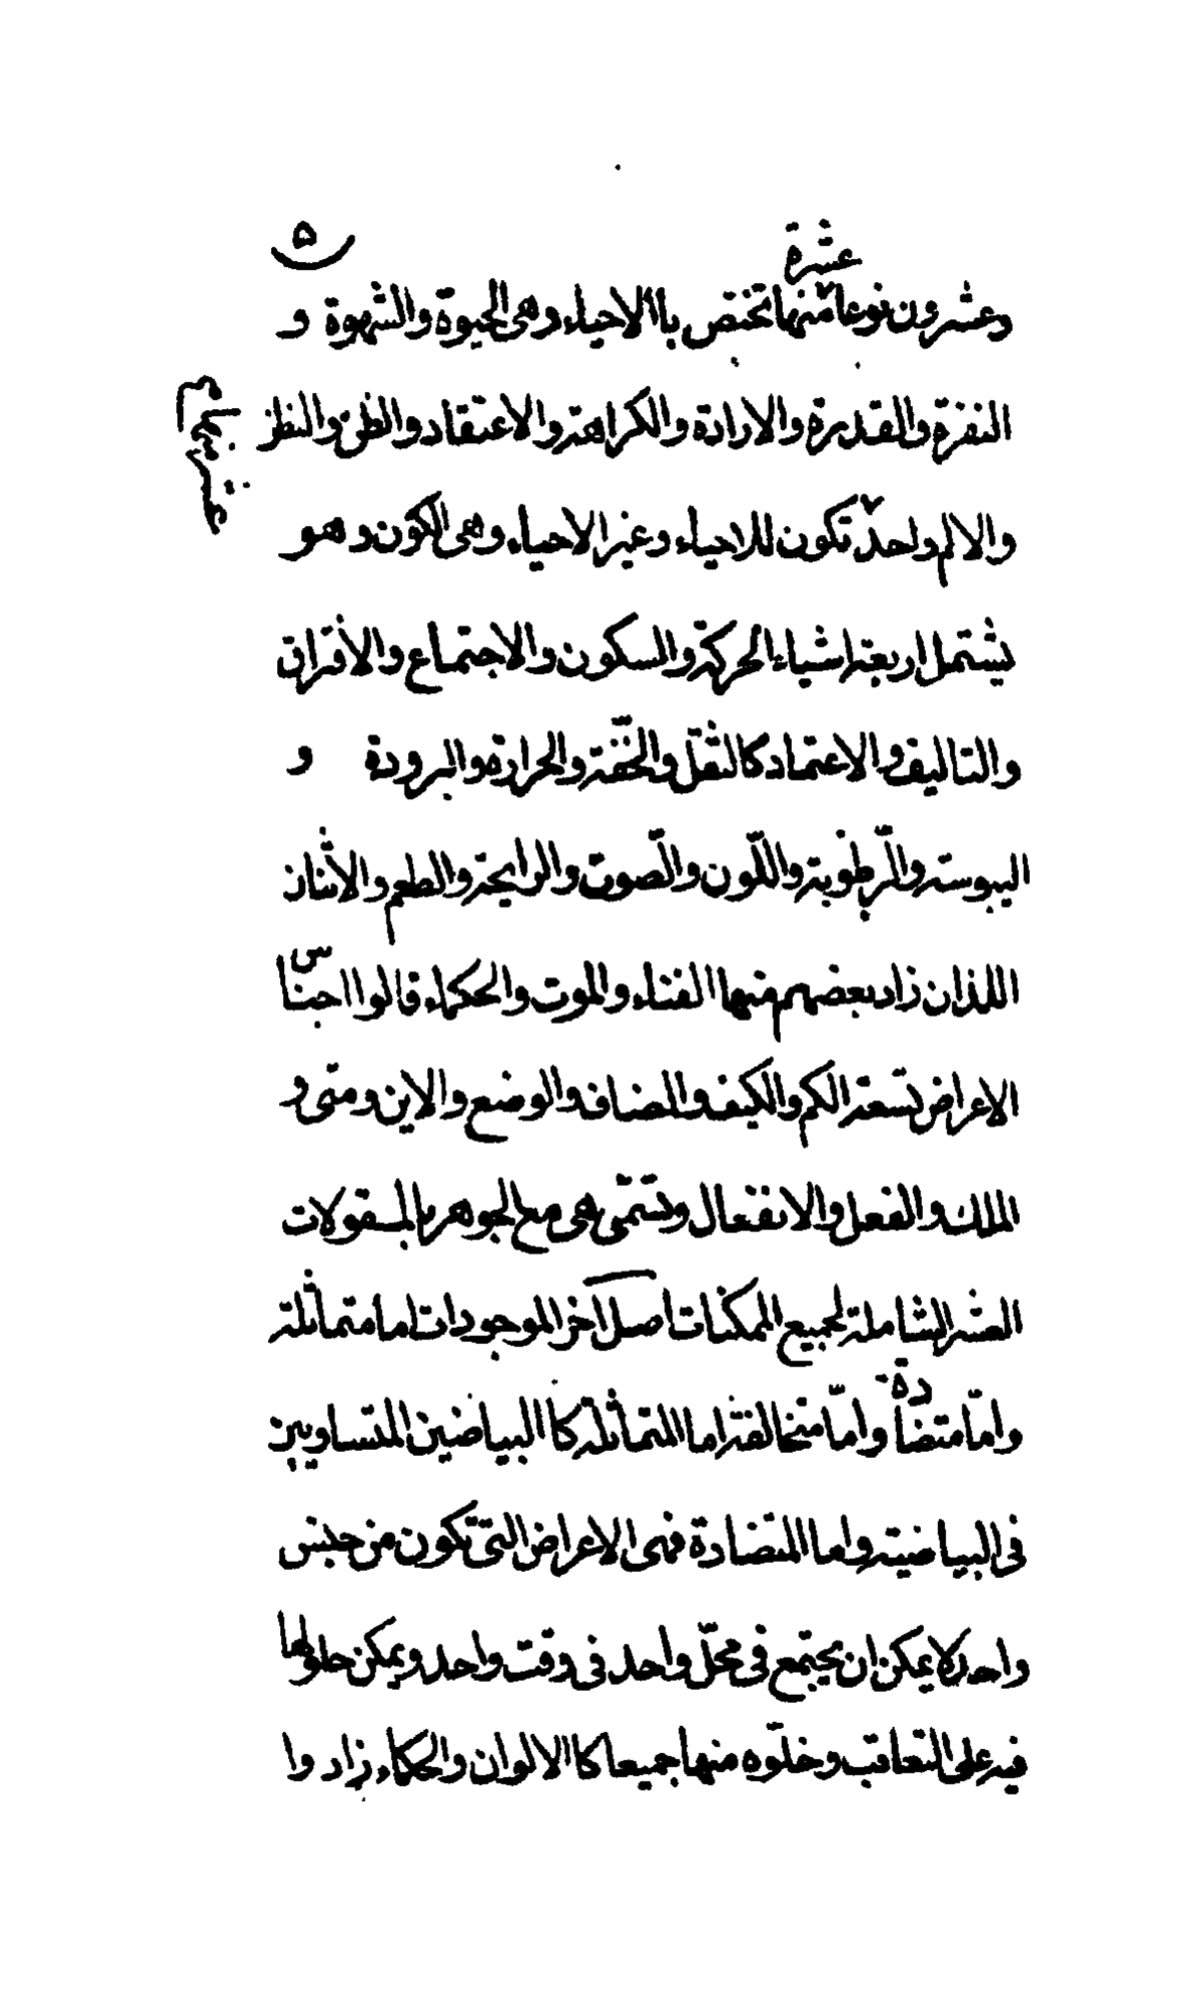 ٥
عشرة
وعشرون نوعا منها تختص باالاحياء وهى الحيوة والشهوة و
النفرة والقدرة والارادة والكراهة والاعتقاد والظن والنظر
والالم واحد تكون للاحياء وغير الاحياء وهى الكون وهو
يشتمل اربعة اشياء الحركة والسكون والاجتماع والافتراق
والتاليف والاعتماد كالثقل والخفة والحرارة والبرودة و
اليبوسة والرّطوبة واللّون والصّوت والرايحة والطعم والاثنان
اللذان زاد بعضهم منها الفناء والموت والحكماء قالوا اجناس
الاعراض تسعة الكم والكيف والمضاف والوضع والاين ومتى و
الملك والفعل والانفعال وتسمّى هى مع الجوهر بالمقولات
العشر الشاملة لجميع الممكنات اصل آخر الموجودات اما متماثلة
وامّا متضادة وامّا متخالفة اما المتماثلة كا البياضين المتساويين
فى البياضية واما المتضادة فهى الاعراض التى تكون من جنس
واحد لا يمكن ان يجتمع فى محلّ واحد فى وقت واحد ويمكن حلولها
فيه على التعاقب وخلوّه منها جميعا كا الالوان والحكماء زادوا